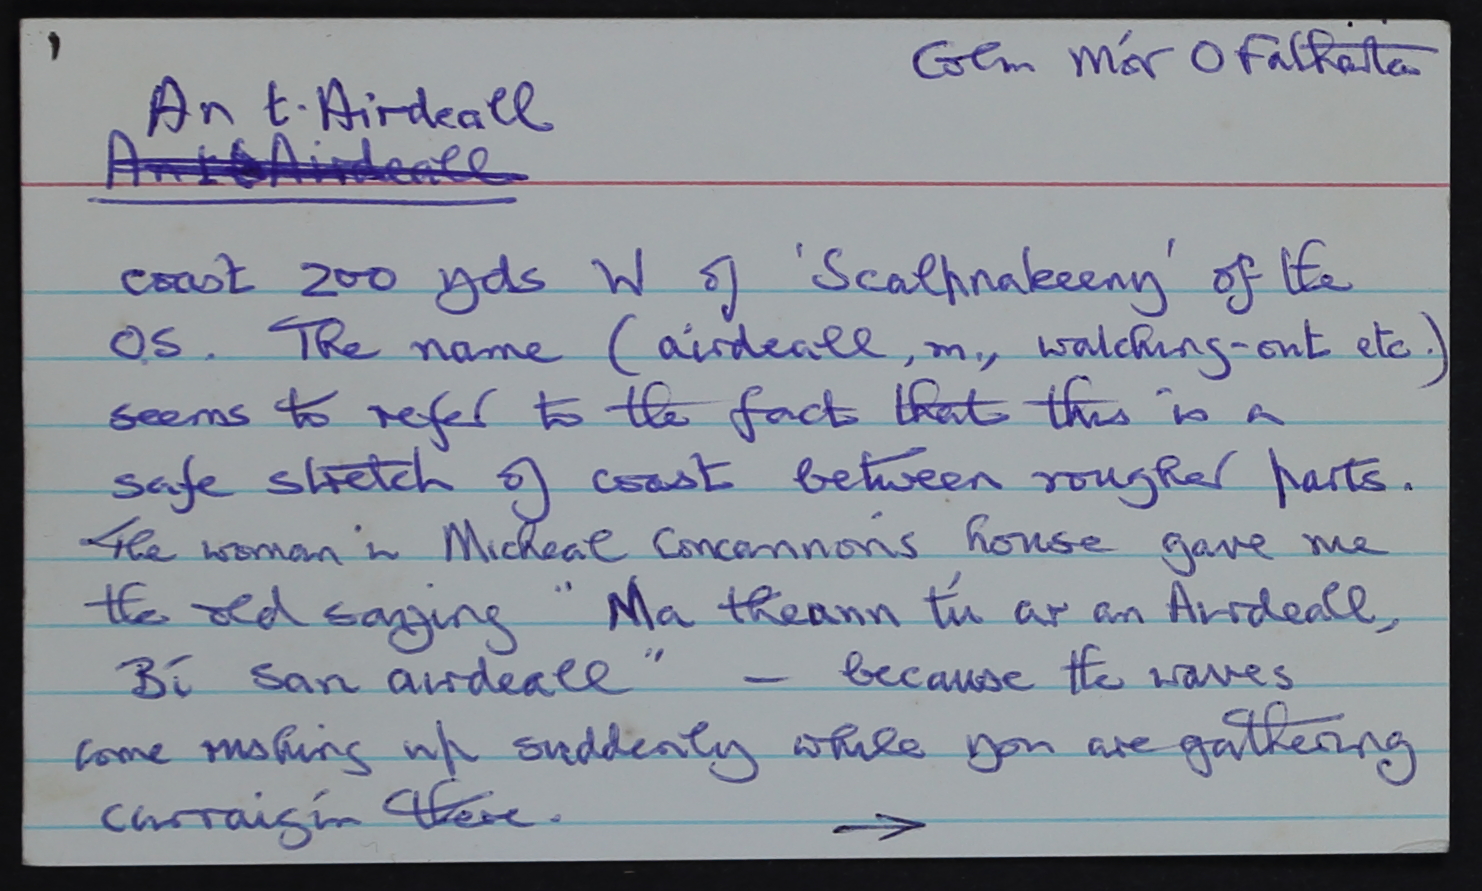 Colm Mór O Fatharta
An t-Airdeall
An t-Airdeall
coast 200 yds W of 'Scalpnakeeny' of the
OS. The name (airdeall, m., watching-out etc.)
seems to refer to the fact that this is a
safe stretch of coast between rougher parts.
The woman in Micheal Concannon's house gave me
the old saying "Ma theann tú ar an Airdeall,
Bí san airdeall" — because the waves
come rushing up suddenly while you are gathering
carraigín there. →